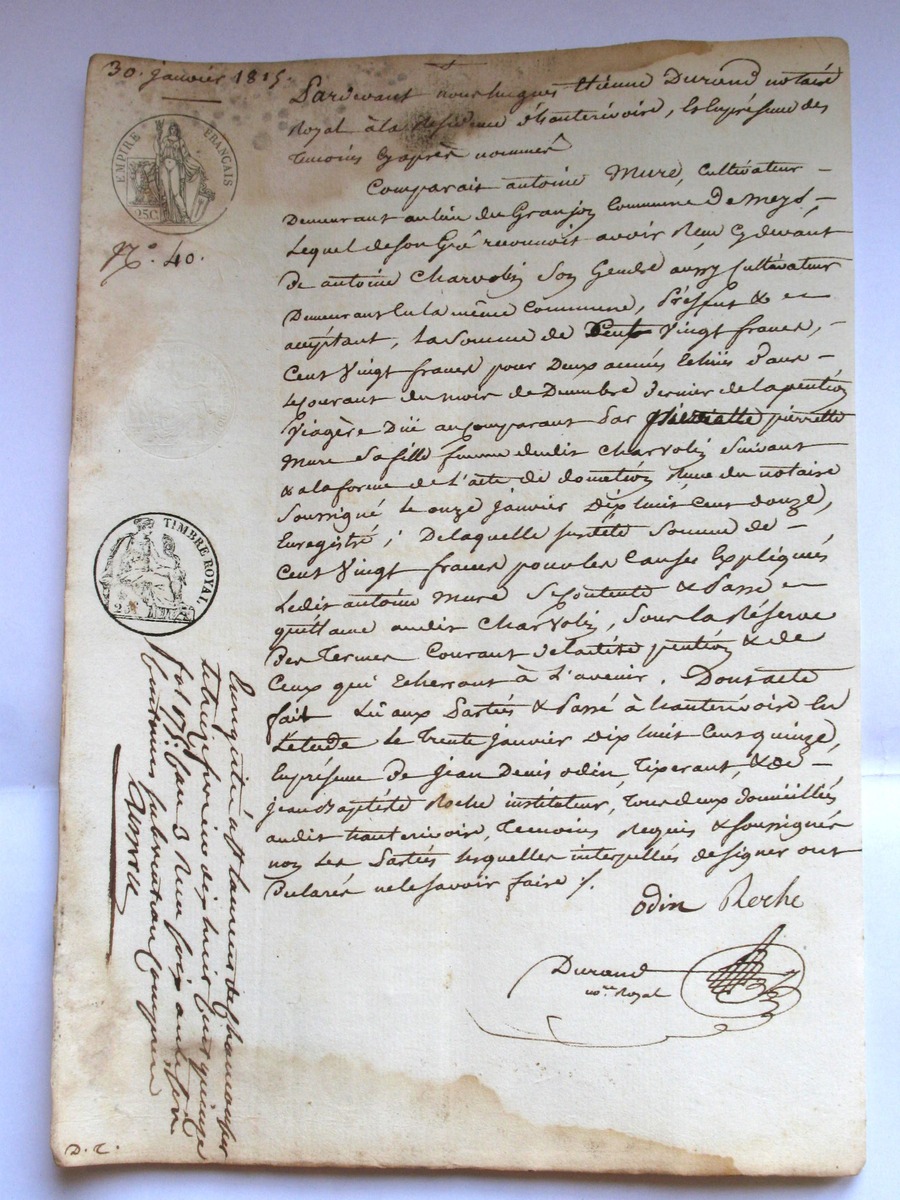 30. janvier 1815.
EMPIRE FRANÇAIS
25C
N.° 40.
TIMBRE ROYAL
Pardevant nous hugues Etienne Durand notaire
Royal à la Résidence d'hauterivoire, En présence des
Temoins Cy après nommés
Comparait antoine Mure, Cultivateur
Demeurant au lieu du Granjon Commune De meys,
Lequel de son Gré reconnoit avoir Reçu Cy devant
De antoine Charvolin Son Gendre aussy Cultivateur
Demeurant En la même Commune, Présent & en
acceptant, la Somme de Vingt francs,
Cent Vingt francs pour Deux années Echues
Le Courant du mois de Decembre dernier de la pention
Viagère Düe au Comparant par pierrette
Mure Sa fille femme dudit Charvolin Suivant
& a la forme de L'acte de donnation Reçue du notaire
Soussigné le onze janvier Dix huit Cent douze,
Enregistré; De laquelle Somme de
Cent Vingt francs pour les Causes Expliqués
Ledit antoine Mure Se Contente & Passe
quittance audit Charvolin, Sous la Réserve
Des Termes Courant de laditte pention & de
Ceux qui Echerront à L'avenir. Dont acte
fait Lû aux Parties & Passé à hauterivoire En
Letude le Trente janvier Dix huit Cent quinze,
En présence de jean Denis odin, Tisserant, & de
jean Baptiste Roche instituteur, Tous deux domiciliés
audit hauterivoire, Temoins Requis & Soussignés
non les Parties lesquelles interpellés de signer ont
Declarés ne le savoir faire /.
odin Roche
Durand
no.re Royal
Enregistré à St laurent de Chamousset
le fevrier dix huit cent quinze
fol. 97. Case 3 Reçu
centimes Compris
D. T.